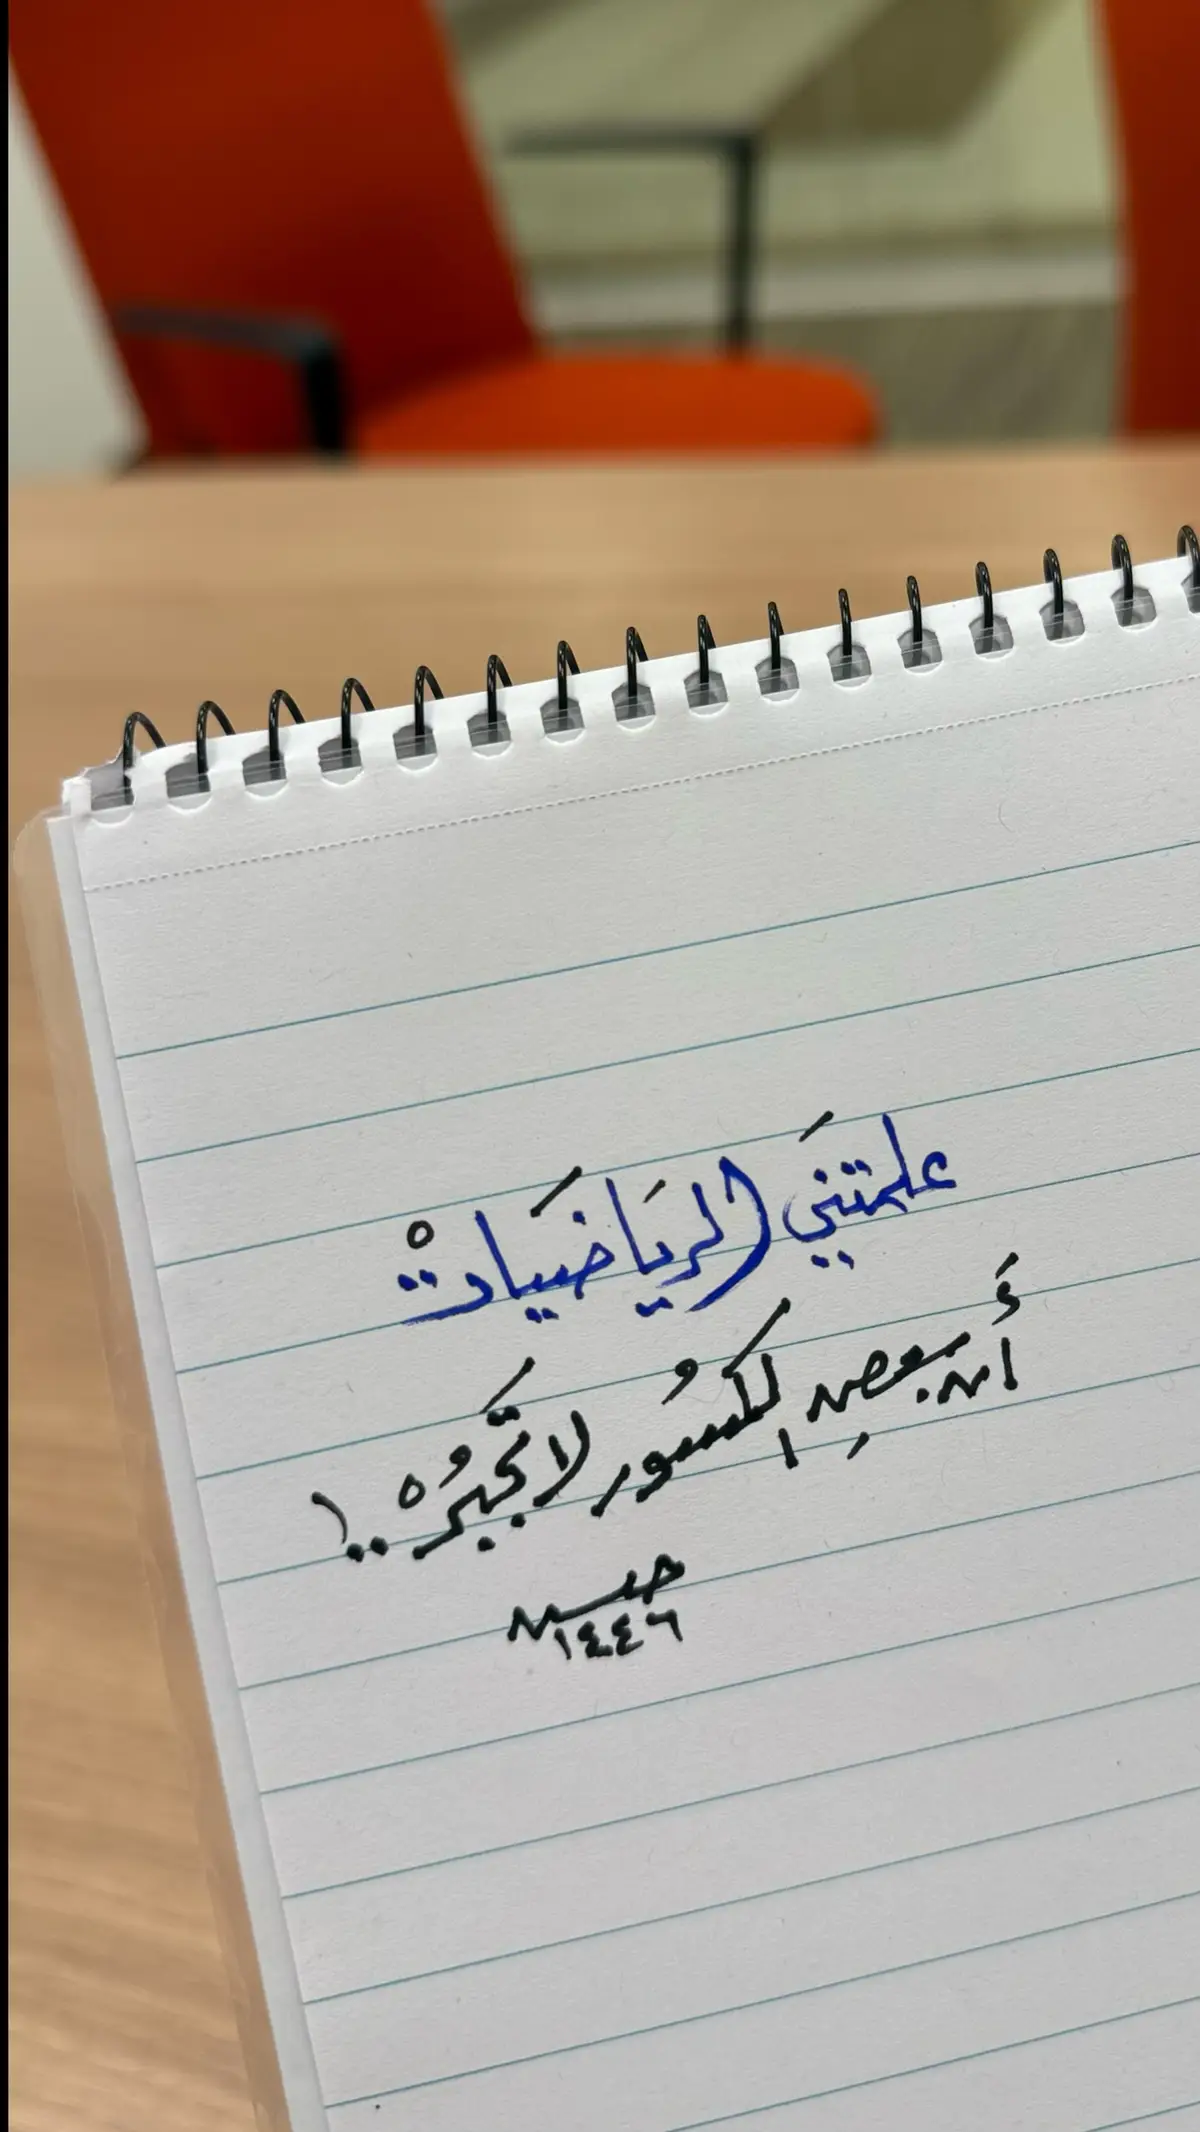 علمتنيَ الريَاضيَاتْ
أَن بعضِ الكسُور لا تجَّبرُهْ ..!
حسن
١٤٤٦